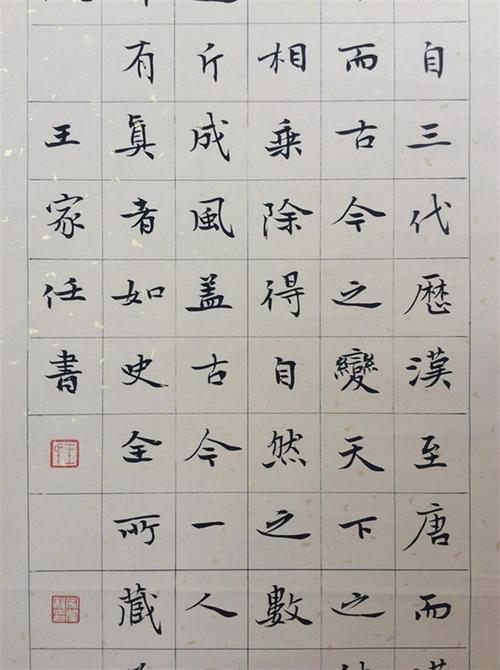 自三代歷漢至唐而
而古今之變天下之
相乘除得自然之數
斤成風盖古今一人
有眞者如史全所藏
王家任書